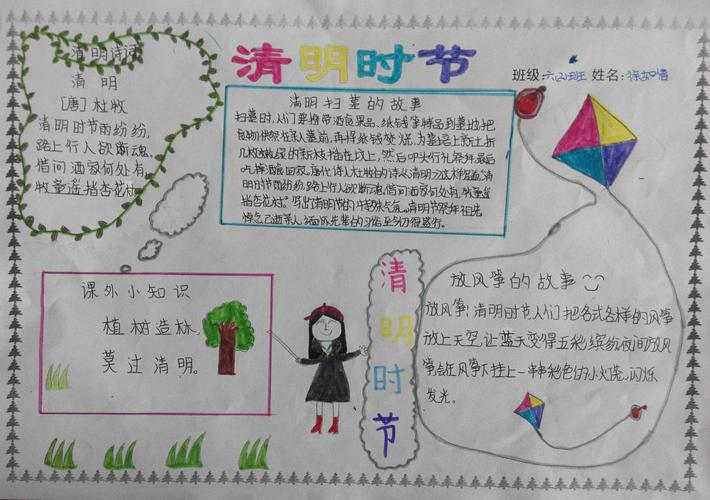 清明时节
班级:六(2)班 姓名:徐如惜
清明诗词
清 明
[唐]杜牧
清明时节雨纷纷,
路上行人欲断魂。
借问酒家何处有,
牧童遥指杏花村。
清明扫墓的故事
扫墓时,人们要携带酒食果品、纸钱等物品到墓地,把
食物供祭在亲人墓前,再将纸钱焚烧,为坟墓培上新土,折
几枝嫩绿的新枝插在坟上,然后叩头行礼祭拜,最后
吃掉酒食回家。唐代诗人杜牧的诗《清明》这样写道:"清
明时节雨纷纷,路上行人欲断魂。借问酒家何处有,牧童遥
指杏花村。"写出了清明节的特殊气氛。清明节祭拜祖先
悼念已逝亲人,的习俗至今仍很盛行。
课外小知识
植树造林,
莫过清明。
清
明
时
节
放风筝的故事
放风筝:清明时节人们把各式各样的风筝
放上天空,让蓝天变得五彩缤纷,夜间放风
筝会在风筝下挂上一串串彩色的小火慌,闪烁
发光。